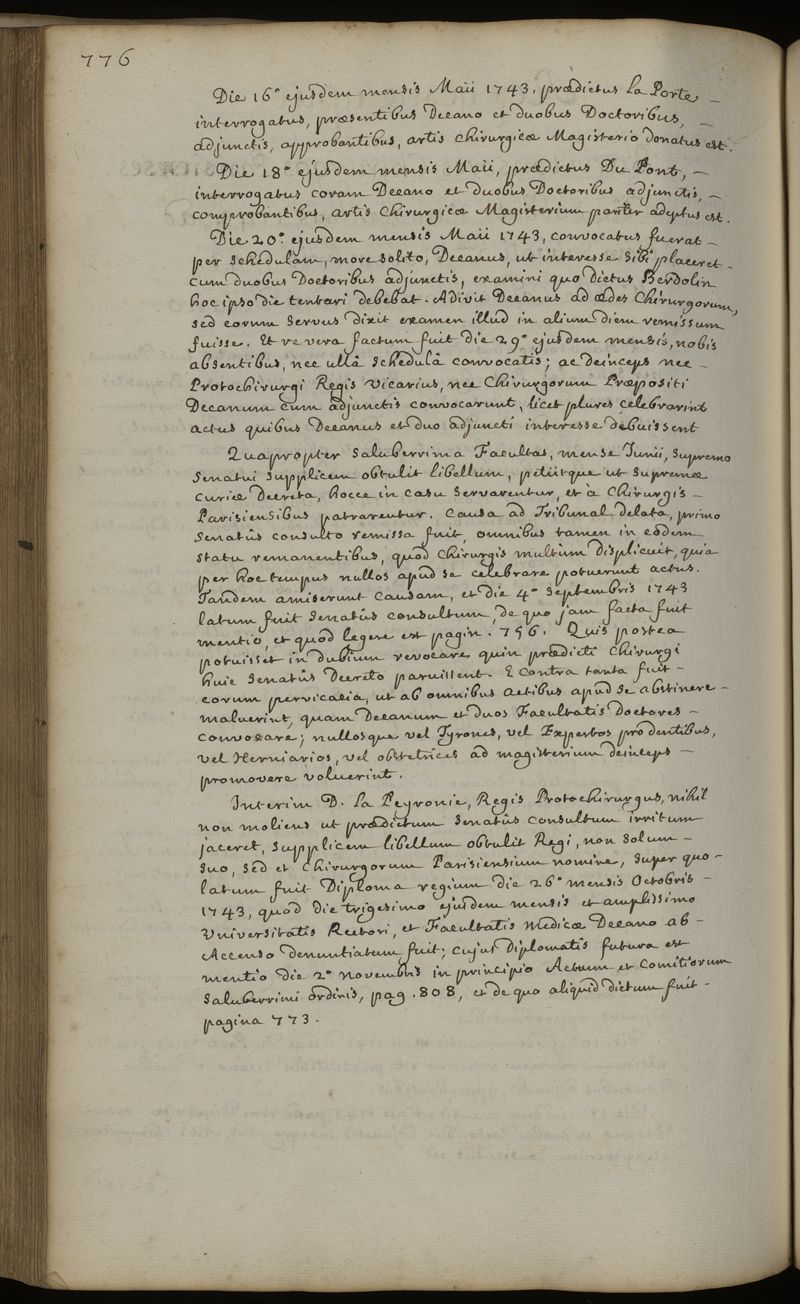 776
Die 16° ejusdem mensis Maii 1743, prædictus La Porte
interrogatus, præsentibus Decano et duobus Doctoribus,
adjunctis, approbantibus, artis chirurgicæ Magisterio donatus est.
Die 18° ejusdem mensis Maii, prædictus Du Pont,
interrogatus coram Decano et duobus Doctoribus adjunctis,
comprobantibus, artis Chirurgicæ Magisterium pariter adeptus est.
Die 20° ejusdem mensis Maii 1743, convocatus fuerat
per schedulam, more solito, Decanus, ut interesse sibi placeret
cum duobus Doctoribus adjunctis, examini quo dictus Berdolin
hoc ipso die tentari debebat. Adivit Decanus ad ædes Chirurgorum,
sed eorum servus dixit examen illud in alium diem remissum
fuisse. Et re vera factum fuit die 29° ejusdem mensis, nobis
absentibus, nec ullâ schedulâ convocatis; ac deinceps nec
Protochirurgi Regis vicarius, nec Chirurgorum Præpositi
Decanum cum adjunctis convocarunt, licet plures celebrarint
actus quibus Decanus et duo adjuncti interesse debuissent
Quapropter saluberrima Facultas, mense Junii, supremo
senatui supplicem obtulit libellum, petiitque ut supremæ
curiæ Decreta, hocce in casu servarentur, et à Chirurgis
Parisiensibus patrarentur. Causa ad Tribunal delata, primo
senatûs consulto remissa fuit, omnibus tamen in eodem
statu remanentibus, quod Chirurgis multùm displicuit, quia
per hoc tempus nullos apud se celebrare potuerunt actus.
Tandem amiserunt causam, et die 4° septembris 1743
latum fuit senatûs consultum, de quo jam facta fuit
mentio, et quod legere est pagin. 756. Quis postea
potuisset in dubium revocare quin prædicti Chirurgi
huic senatûs Decreto paruissent. E contra tanta fuit
eorum pervicacia, ut ab omnibus actibus apud se abstinere
maluerint, quam Decanum et duos Facultatis Doctores
convocare; nullosque vel Tyrones, vel Expertos pro dentibus,
vel Herniarios, vel obstetrices ad magisterium deinceps
promovere voluerint.
Interim D. La Peyronie, Regis Protochirurgus, nihil
non moliens ut prædictum senatûs consultum irritum
jaceret, supplicem libellum obtulit Regi, non solum
suo, sed et Chirurgorum Parisiensium nomine, super quo
latum fuit Diploma regium die 26° mensis Octobris
1743, quod die trigesimo ejusdem mensis et amplissimo
Universitatis Rectori, et Facultatis Medicæ Decano ab
Accenso denuntiatum fuit; cujus Diplomatis futura est
mentio die 2° novembris in principio Actuum et Comitiorum
saluberrimi ordinis, pag. 808, et de quo aliquid dictum fuit
pagina 773.